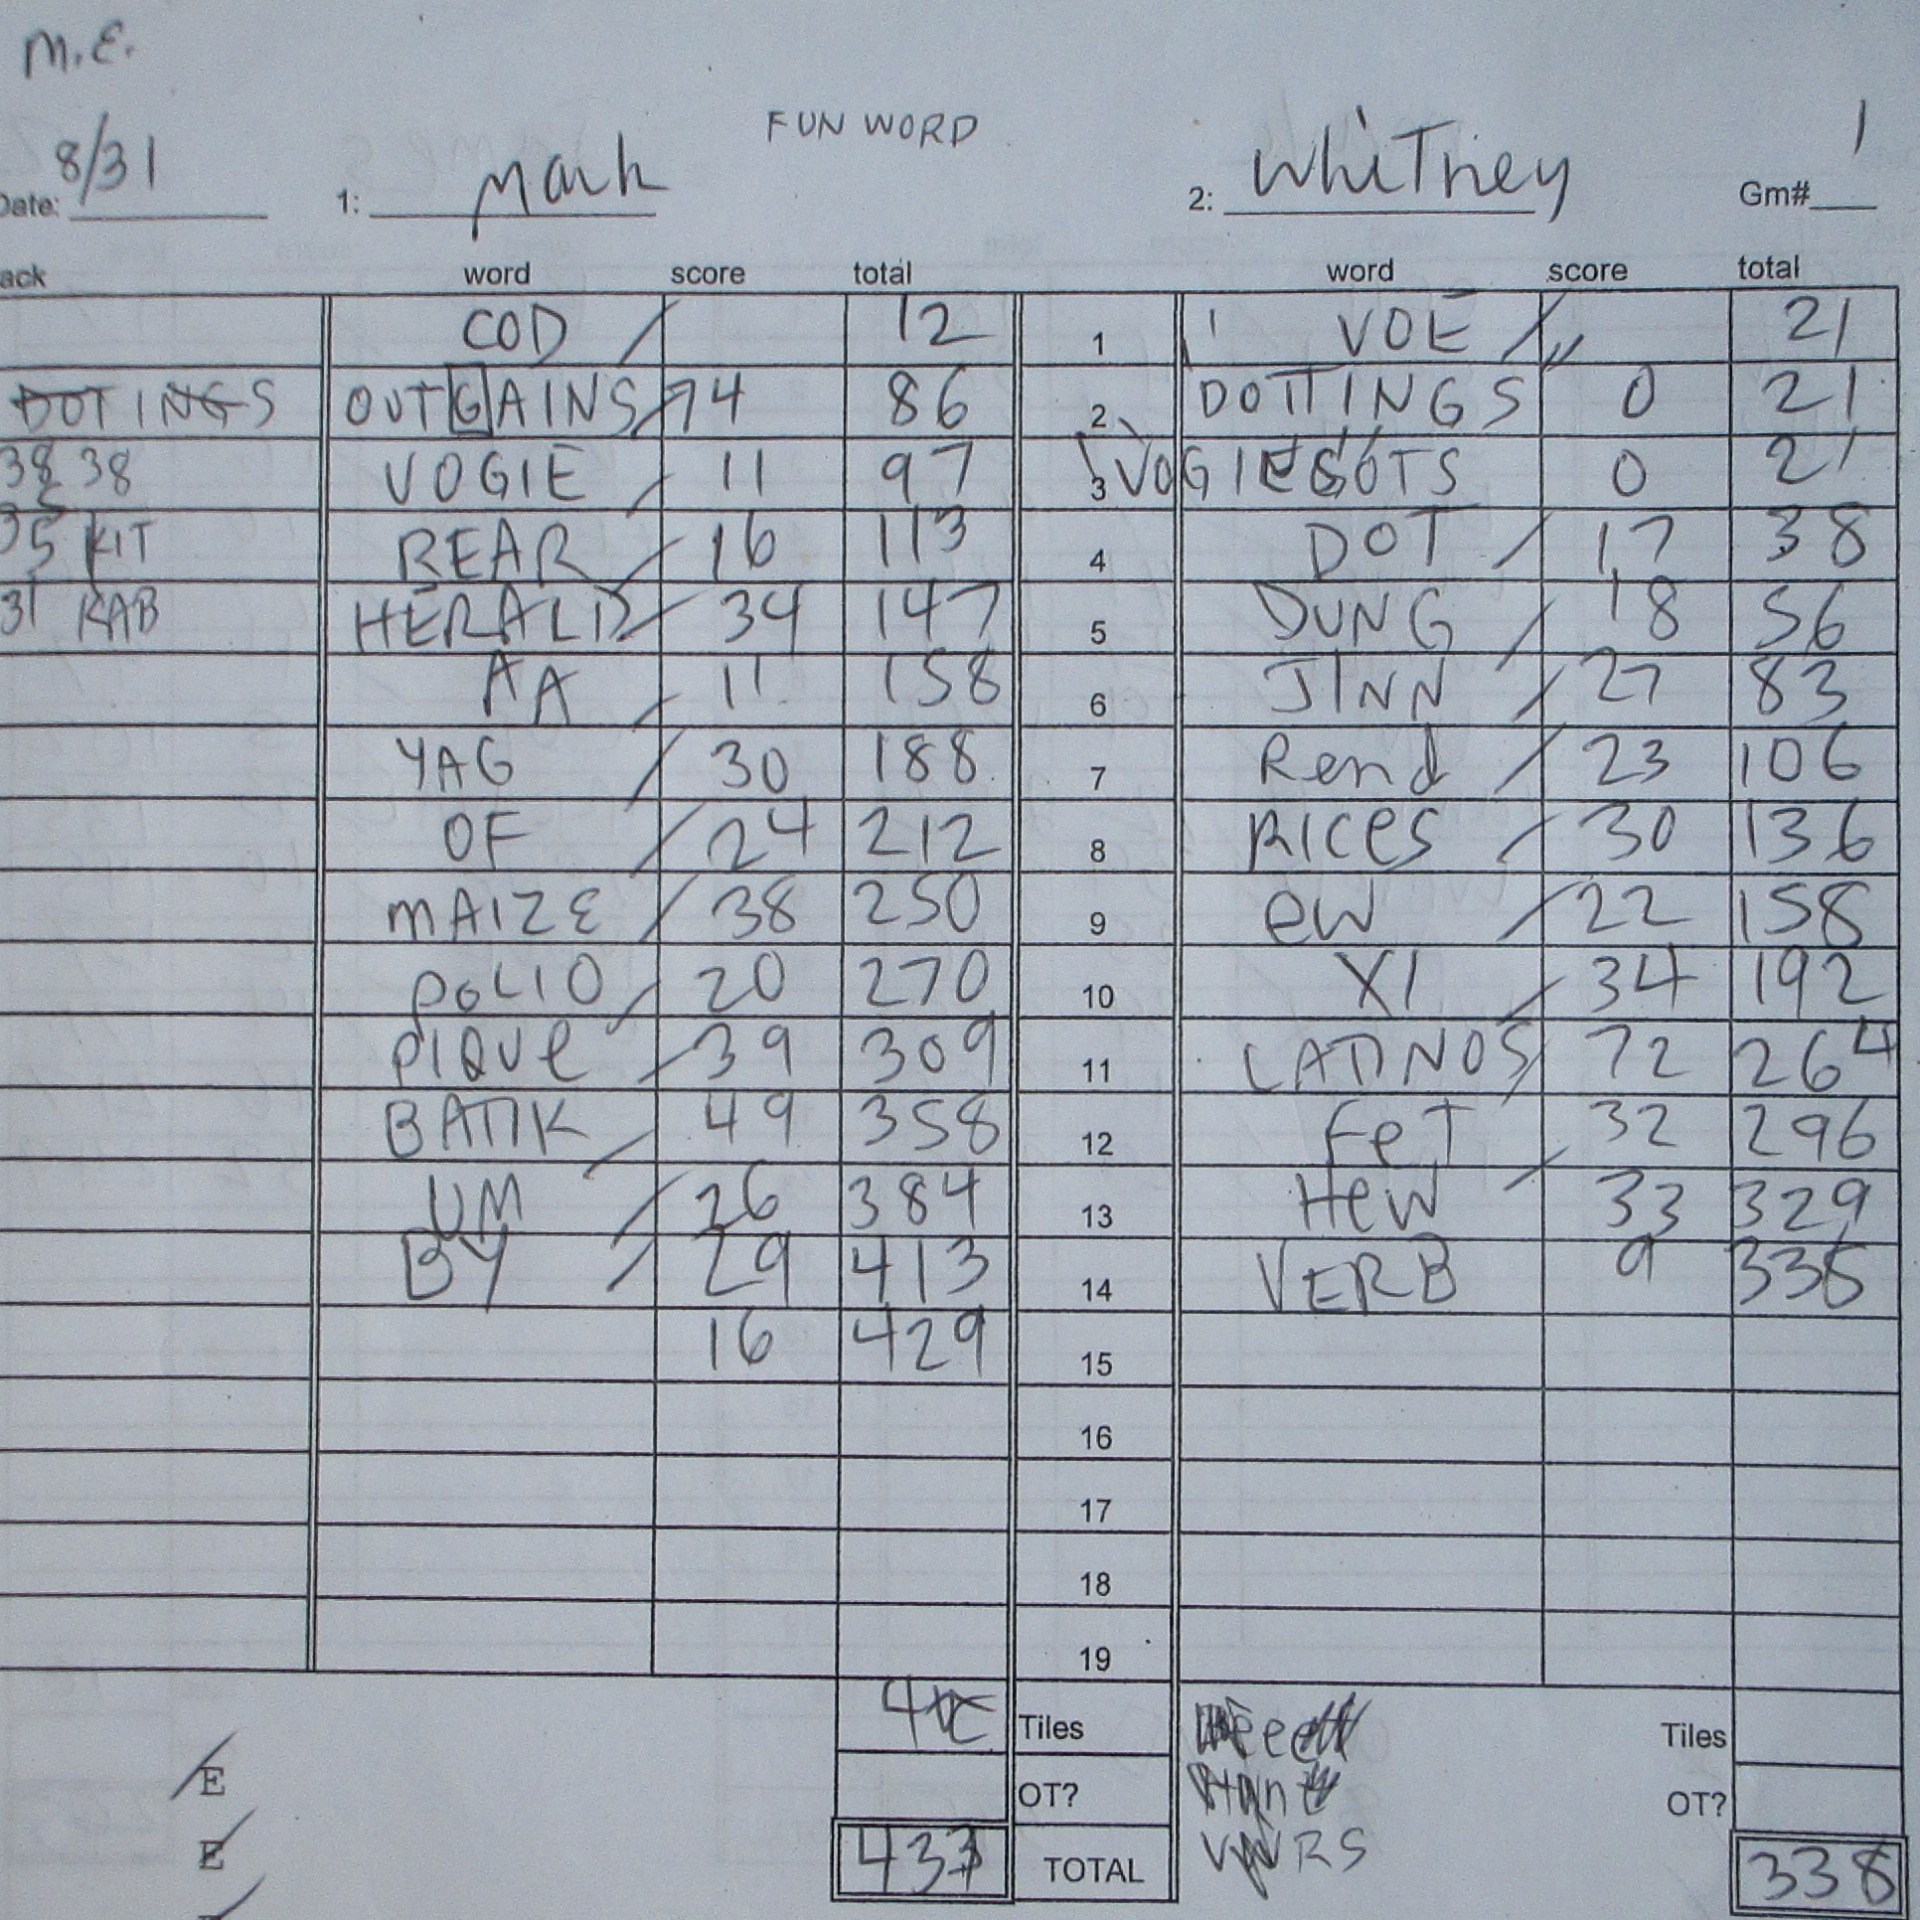 M.E.
FUN WORD
Date: 8/31 1: Mark 2: WhiTney Gm# 1
ack word score total word score total
COD 12 1 VOE 21
DOTINGS OUTGAINS 74 86 2 DOTTINGS 0 21
38 38 VOGIE 11 97 3 0 21
35 KIT REAR 16 113 4 DOT 17 38
31 KAB HERALD 34 147 5 DUNG 18 56
AA 11 158 6 JINN 27 83
YAG 30 188 7 Rend 23 106
OF 24 212 8 RICes 30 136
MAIZE 38 250 9 eW 22 158
POLIO 20 270 10 XI 34 192
PIQUe 39 309 11 LATINOS 72 264
BATIK 49 358 12 FeT 32 296
UM 26 384 13 HeW 33 329
BY 29 413 14 VERB 9 338
16 429 15
16
17
18
19
Tiles Tiles
E OT? OT?
E 433 TOTAL 338